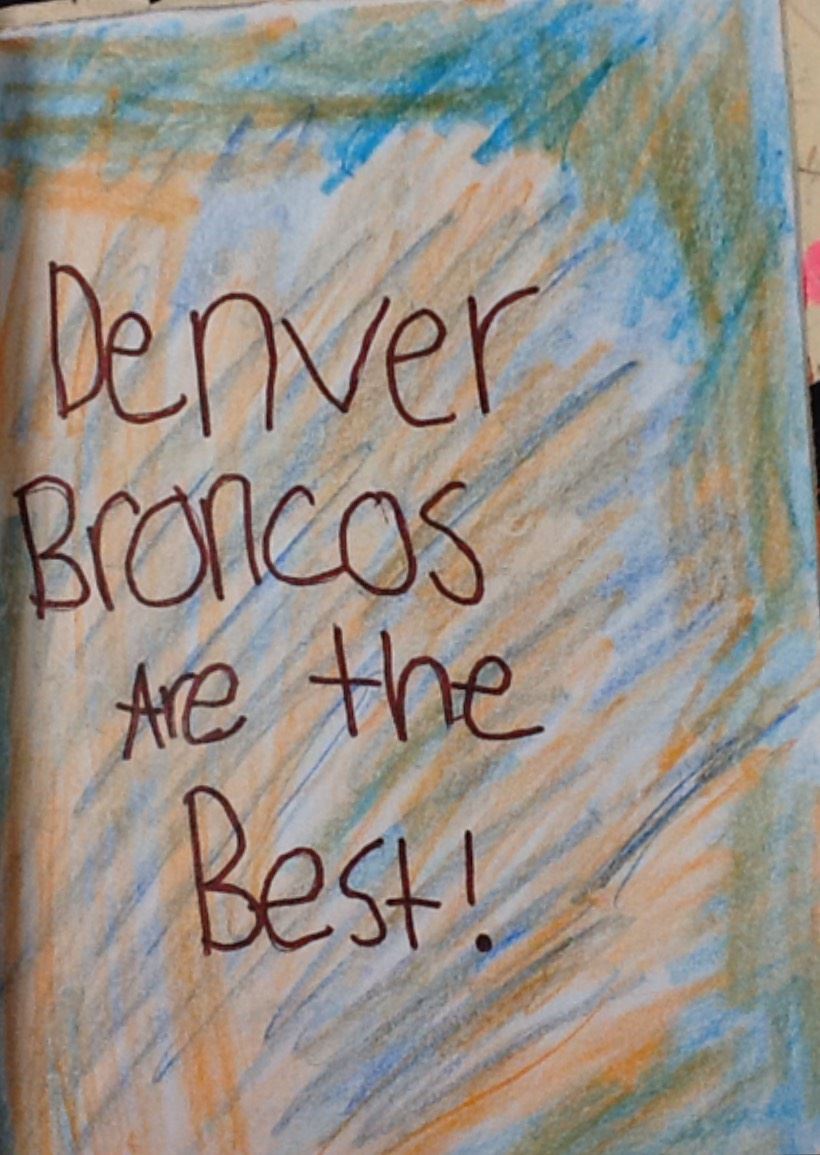 Denver
Broncos
Are the
Best!